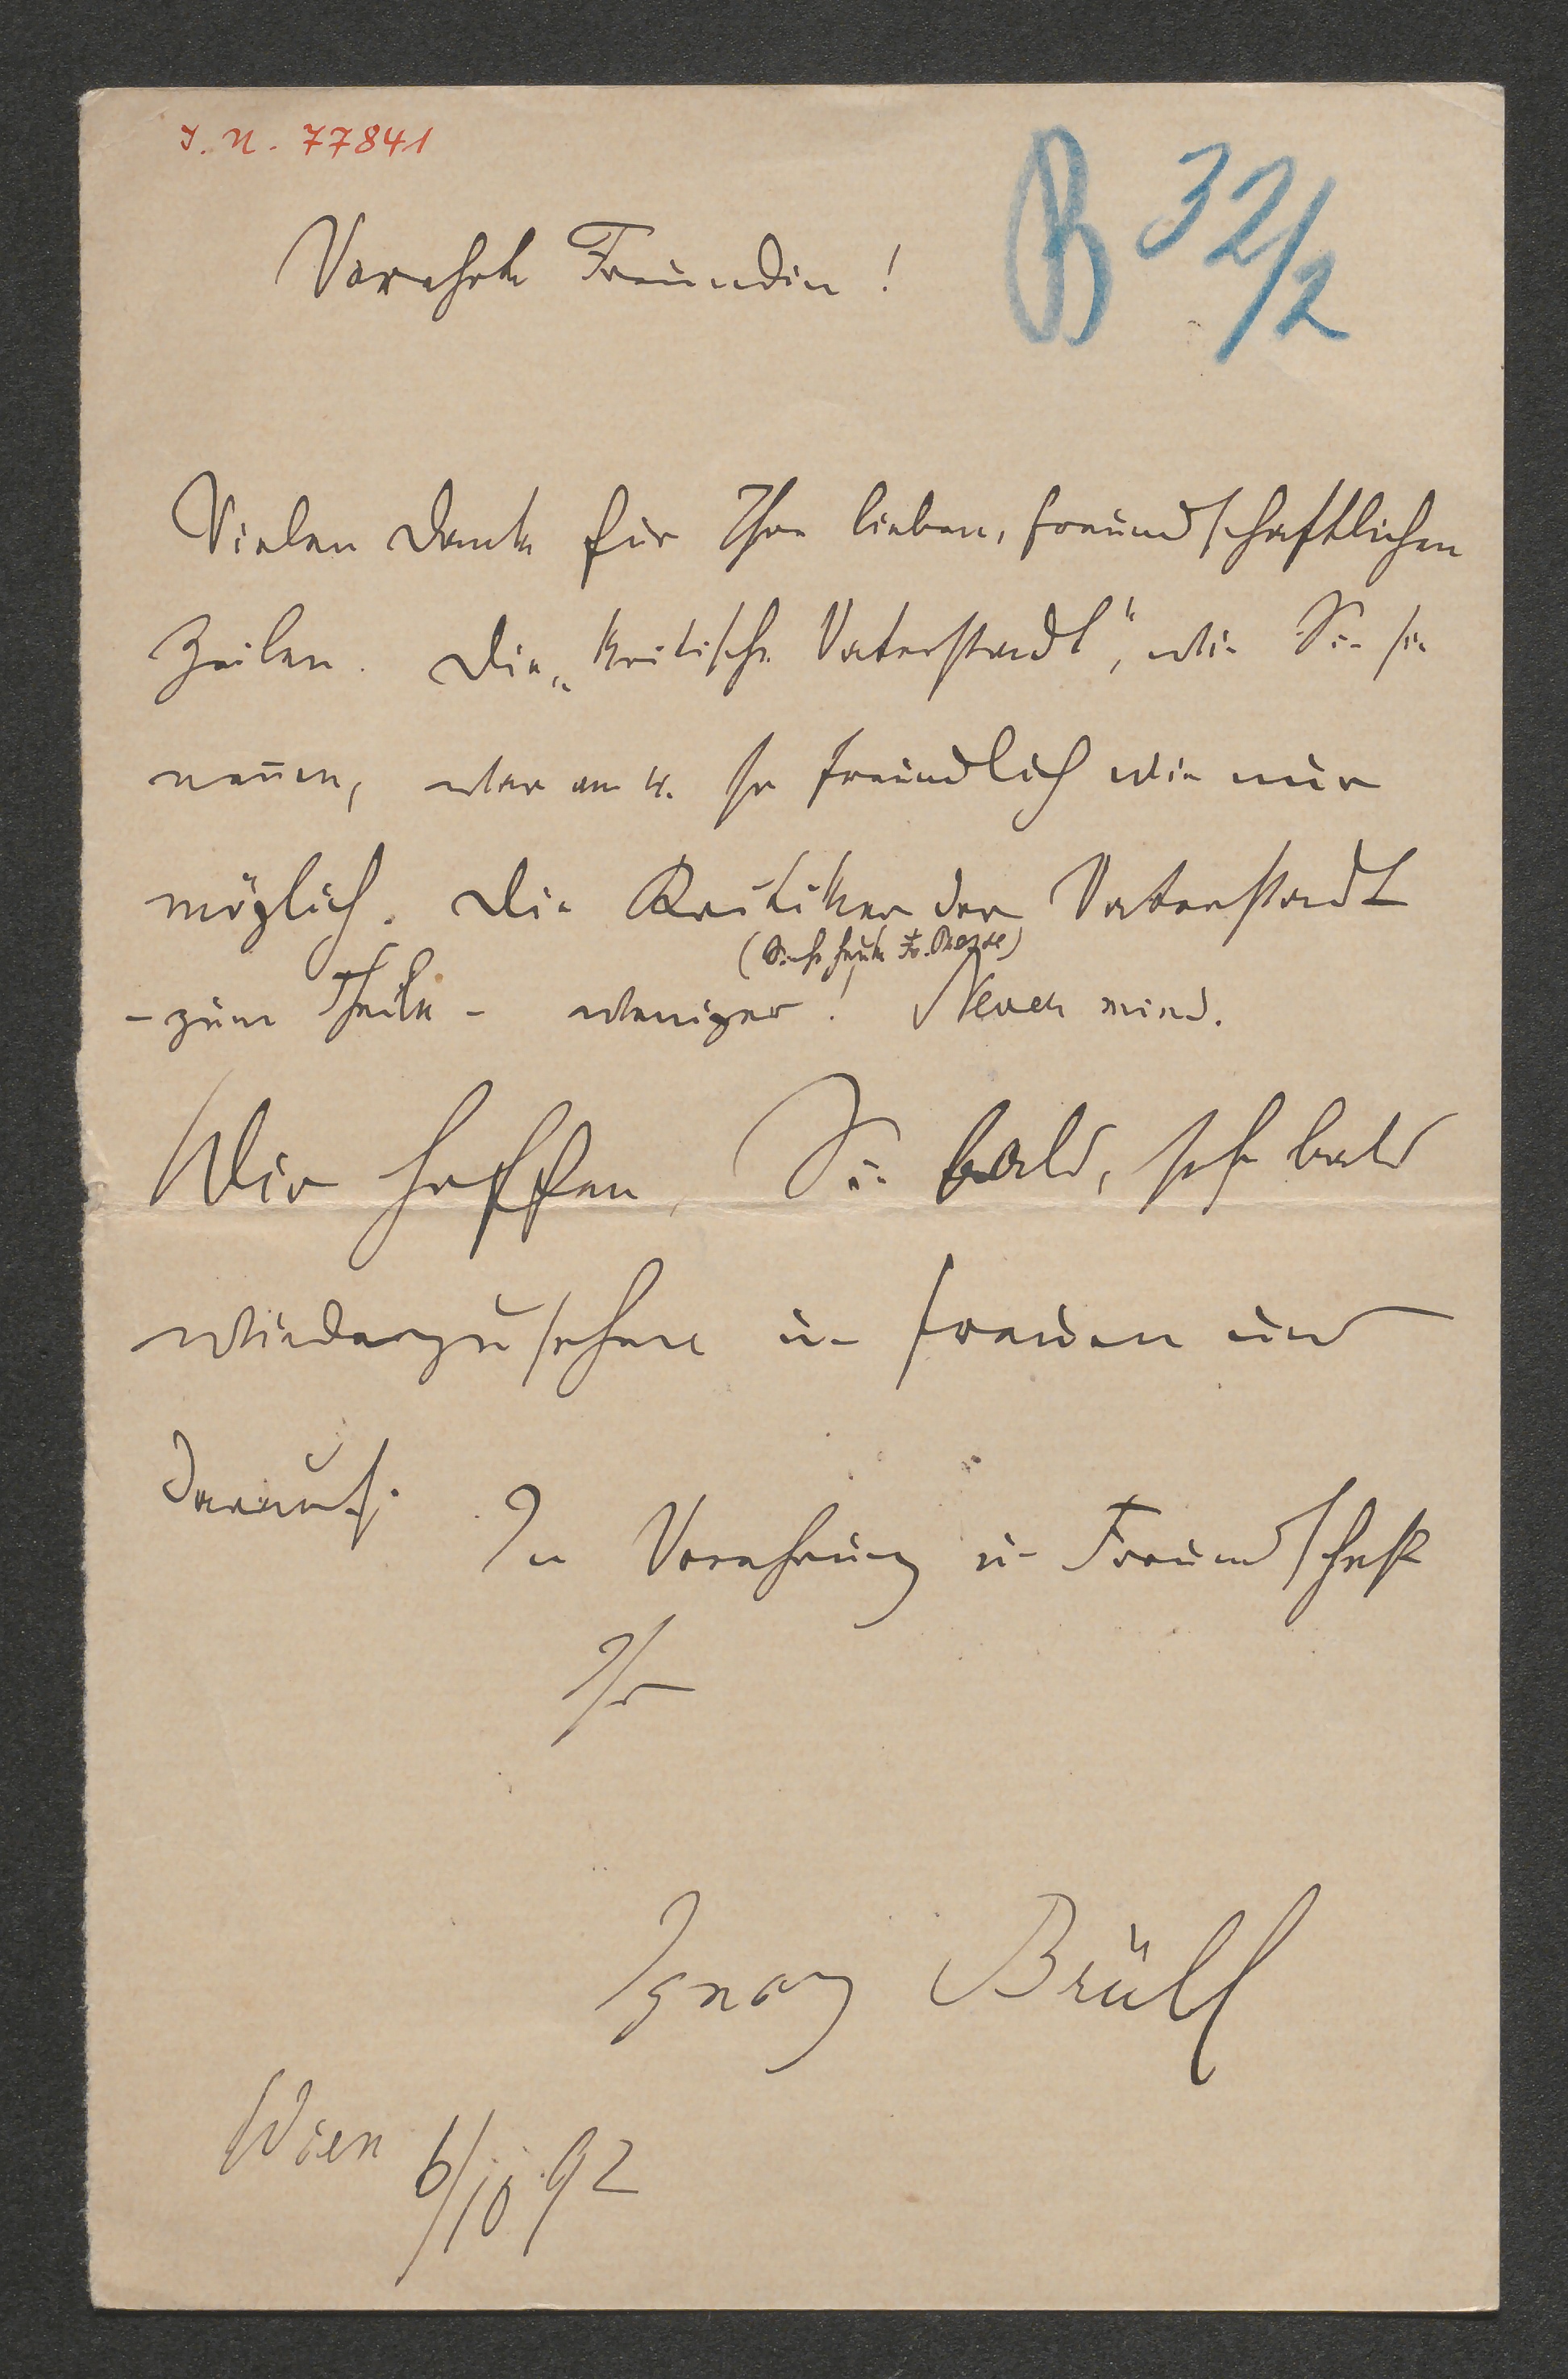 I. N. 77841
B 32/2
Verehrte Freundin!
Vielen Dank für Ihre lieben, freundschaftlichen
Zeilen. Die „kritische Vaterstadt“, wie Sie sie
nen̄en, war am 4. so freundlich wie nur
möglich. Die Kritiker der Vaterstadt
(Siehe heute Fr. Presse)
- zum Theile - weniger! Never mind.
Wir hoffen, Sie bald, sehr bald
wiederzusehen u. freuen uns
darauf. In Verehrung u. Freundschaft
Ihr
Ignaz Brüll
Wien 6/10 92